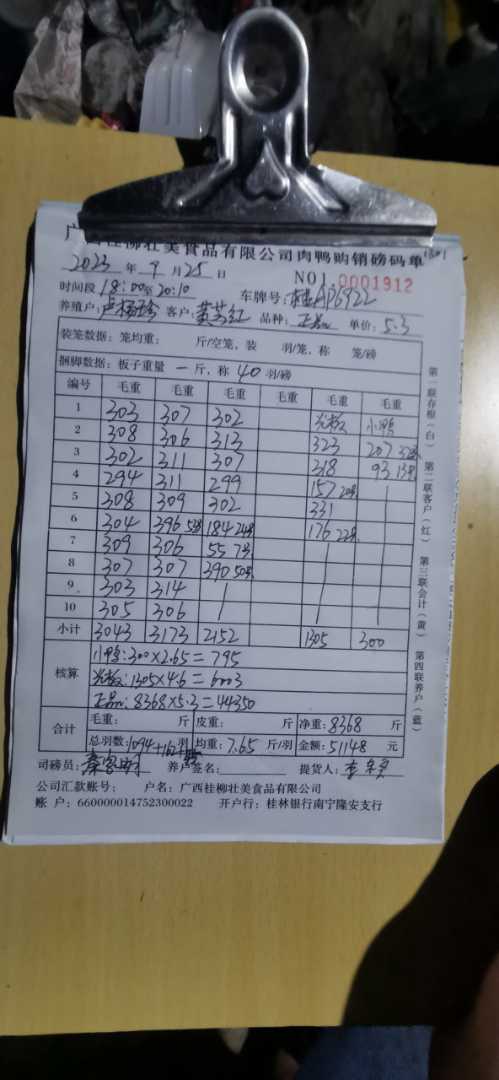 广西桂柳壮美食品有限公司肉鸭购销磅码单
2023 年 9 月 25 日 NO1 0001912
时间段 18:00至20:10 车牌号:桂AP6922
养殖户: 客户:黄芸红 品种:正品 单价:5.3
装笼数据:笼均重: 斤/空笼,装 羽/笼,称 笼/磅
捆脚数据:板子重量 一 斤,称 40 羽/磅
编号 毛重 毛重 毛重 毛重 毛重 毛重
1 303 307 302 光板 小鸭
2 308 306 313 323 207
3 302 311 307 318 93 13只
4 294 311 299 157 20只
5 308 309 302 331
6 304 396 184 24只 176 22只
7 309 306 55 7只 /
8 307 307 390 50只 / /
9 303 314 / / /
10 305 306 / / /
小计 3043 3173 2152 1305 300
核算 小鸭:300×2.65=795
光板:1305×4.6=6003
正品:8368×5.3=44350
合计 毛重: 斤 皮重: 斤 净重:8368 斤
总羽数:1094+162 羽 均重:7.65 斤/羽 金额:51148 元
司磅员: 养户签名: 提货人:
公司汇款账号: 户名:广西桂柳壮美食品有限公司
账 户:660000014752300022 开户行:桂林银行南宁隆安支行
第一联存根(白) 第二联客户(红) 第三联会计(黄) 第四联养户(蓝)